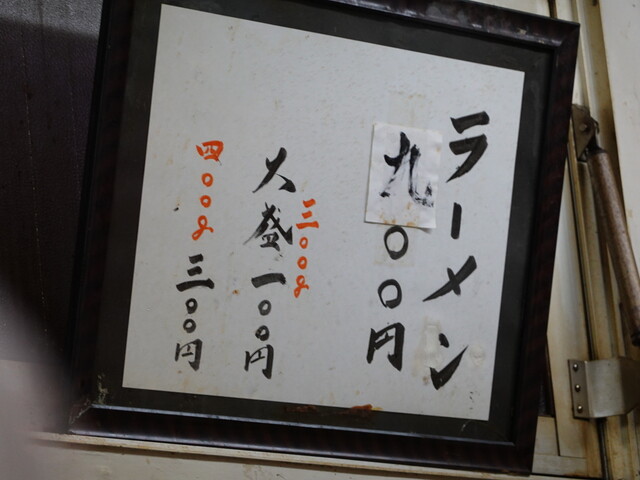 ラーメン
九〇〇円
三〇〇g
大盛一〇〇円
四〇〇g三〇〇円